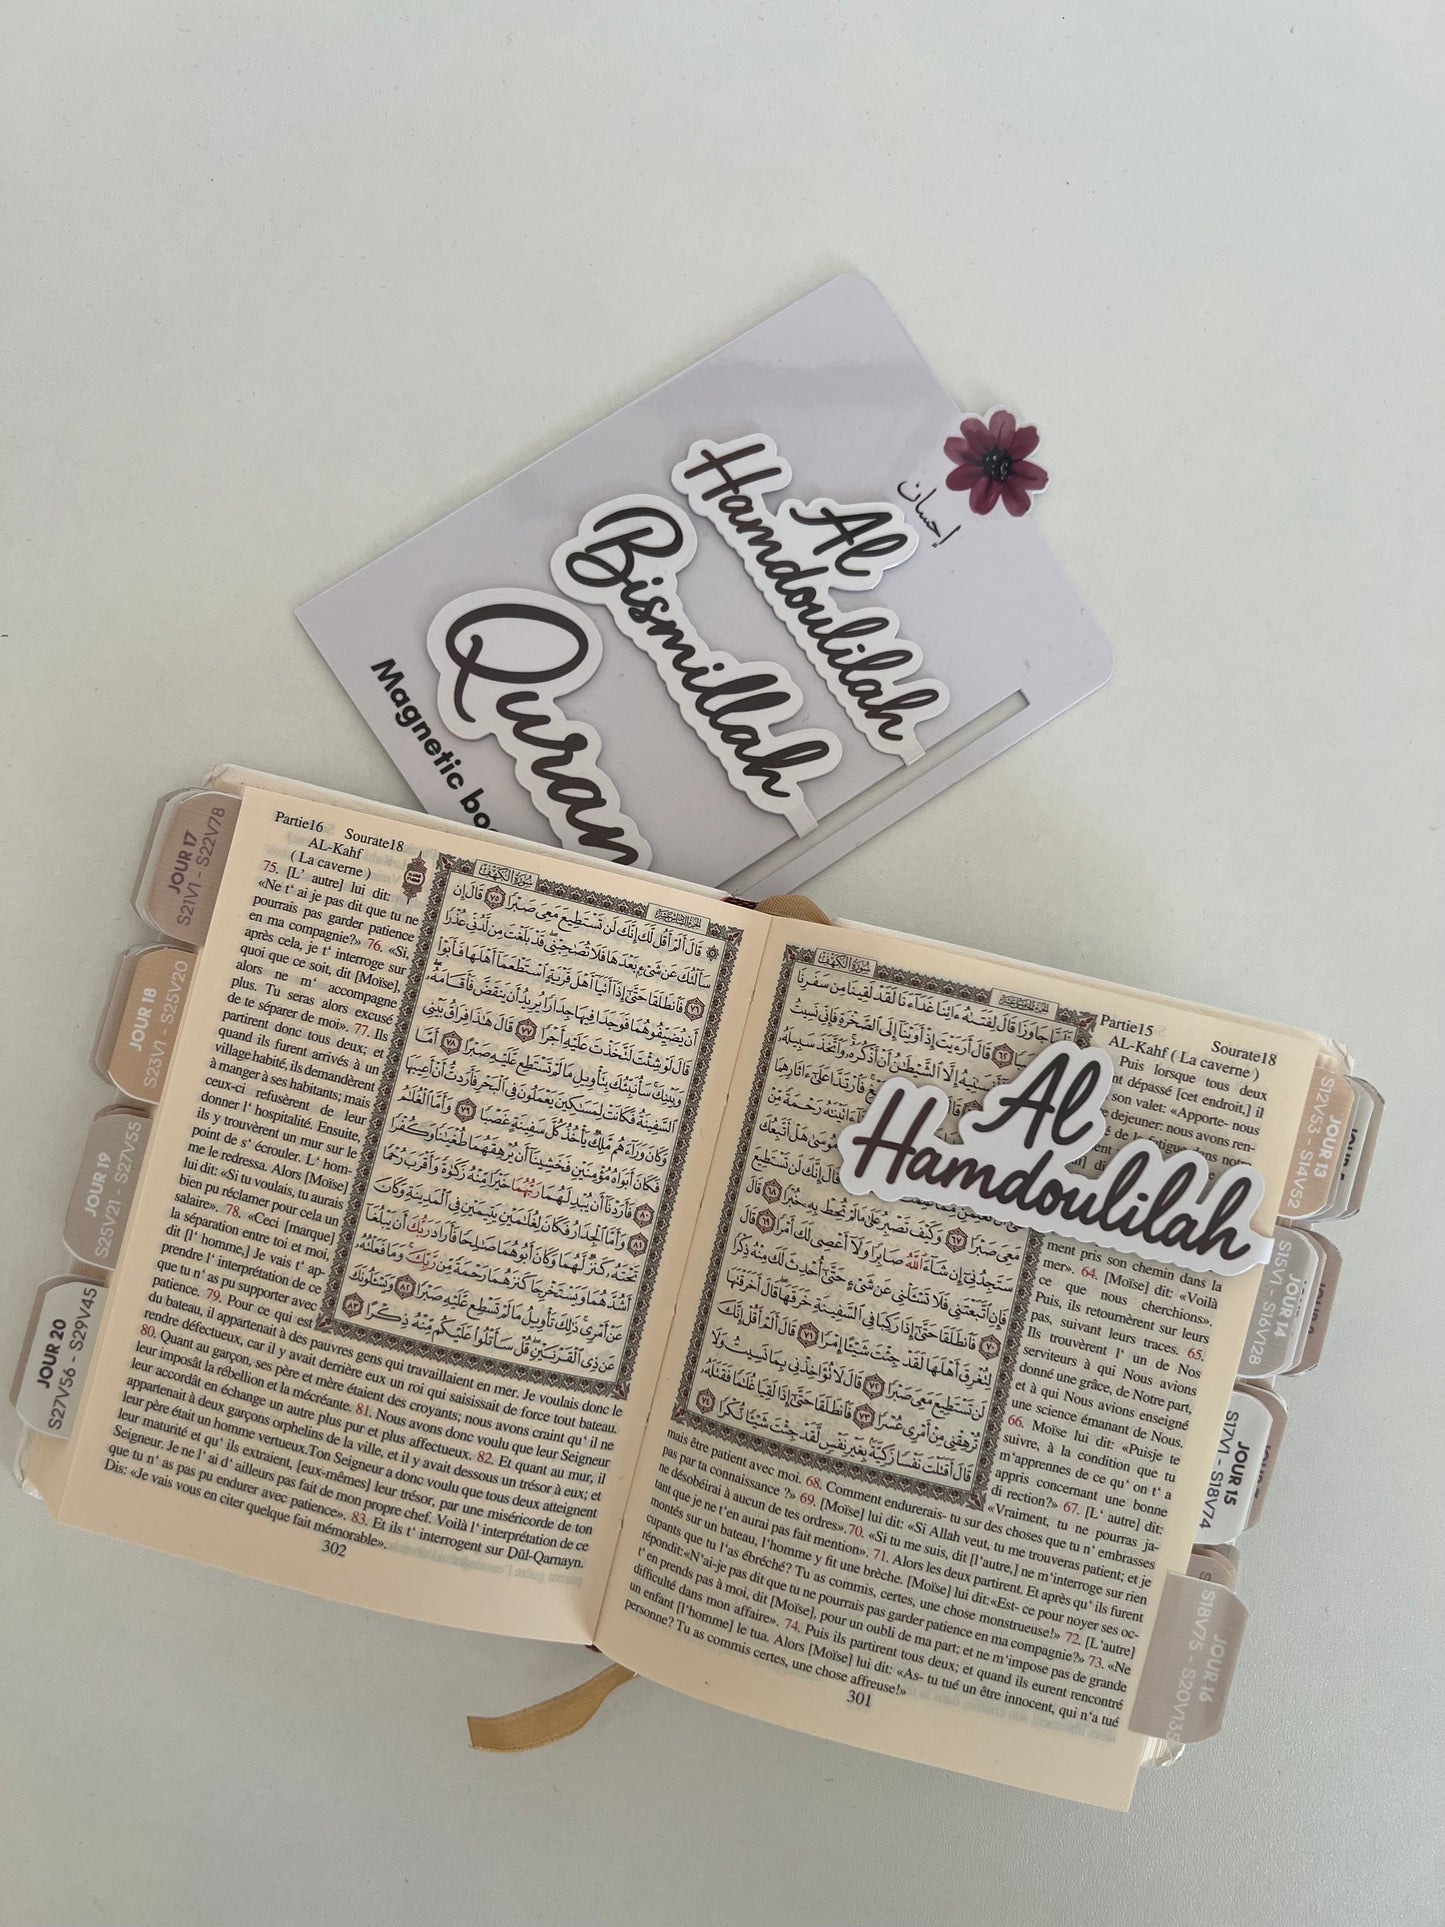 إحسان
Al
Hamdoulilah
Bismillah
Quran
Magnetic bo
JOUR 17
S21V1 - S22V78
JOUR 18
S23V1 - S25V20
JOUR 19
S25V21 - S27V55
JOUR 20
S27V56 - S29V45
Partie16 Sourate18
AL-Kahf
( La caverne )
75. [L' autre] lui dit:
«Ne t' ai je pas dit que tu ne
pourrais pas garder patience
en ma compagnie?» 76. «Si,
après cela, je t' interroge sur
quoi que ce soit, dit [Moïse],
alors ne m' accompagne
plus. Tu seras alors excusé
de te séparer de moi». 77. Ils
partirent donc tous deux; et
quand ils furent arrivés à un
village habité, ils demandèrent
à manger à ses habitants; mais
ceux-ci refusèrent de leur
donner l' hospitalité. Ensuite,
ils y trouvèrent un mur sur le
point de s' écrouler. L' hom-
me le redressa. Alors [Moïse]
lui dit: «Si tu voulais, tu aurais
bien pu réclamer pour cela un
salaire». 78. «Ceci [marque]
la séparation entre toi et moi,
dit [l' homme,] Je vais t' ap-
prendre l' interprétation de ce
que tu n' as pu supporter avec
patience. 79. Pour ce qui est
du bateau, il appartenait à des pauvres gens qui travaillaient en mer. Je voulais donc le
rendre défectueux, car il y avait derrière eux un roi qui saisissait de force tout bateau.
80. Quant au garçon, ses père et mère étaient des croyants; nous avons craint qu' il ne
leur imposât la rébellion et la mécréance. 81. Nous avons donc voulu que leur Seigneur
leur accordât en échange un autre plus pur et plus affectueux. 82. Et quant au mur, il
appartenait à deux garçons orphelins de la ville, et il y avait dessous un trésor à eux; et
leur père était un homme vertueux.Ton Seigneur a donc voulu que tous deux atteignent
leur maturité et qu' ils extraient, [eux-mêmes] leur trésor, par une miséricorde de ton
Seigneur. Je ne l' ai d' ailleurs pas fait de mon propre chef. Voilà l' interprétation de ce
que tu n' as pas pu endurer avec patience». 83. Et ils t' interrogent sur Dûl-Qarnayn.
Dis: «Je vais vous en citer quelque fait mémorable».
302
سُورَةُ الكَهْفِ
قَالَ أَلَمْ أَقُل لَّكَ إِنَّكَ لَن تَسْتَطِيعَ مَعِيَ صَبْرًا ٧٥ قَالَ إِن
سَأَلْتُكَ عَن شَيْءٍ بَعْدَهَا فَلَا تُصَاحِبْنِي قَدْ بَلَغْتَ مِن لَّدُنِّي عُذْرًا
٧٦ فَانطَلَقَا حَتَّىٰ إِذَا أَتَيَا أَهْلَ قَرْيَةٍ اسْتَطْعَمَا أَهْلَهَا فَأَبَوْا
أَن يُضَيِّفُوهُمَا فَوَجَدَا فِيهَا جِدَارًا يُرِيدُ أَن يَنقَضَّ فَأَقَامَهُ
قَالَ لَوْ شِئْتَ لَتَّخَذْتَ عَلَيْهِ أَجْرًا ٧٧ قَالَ هَٰذَا فِرَاقُ بَيْنِي
وَبَيْنِكَ سَأُنَبِّئُكَ بِتَأْوِيلِ مَا لَمْ تَسْتَطِع عَّلَيْهِ صَبْرًا ٧٨ أَمَّا
السَّفِينَةُ فَكَانَتْ لِمَسَاكِينَ يَعْمَلُونَ فِي الْبَحْرِ فَأَرَدتُّ أَنْ أَعِيبَهَا
وَكَانَ وَرَاءَهُم مَّلِكٌ يَأْخُذُ كُلَّ سَفِينَةٍ غَصْبًا ٧٩ وَأَمَّا الْغُلَامُ
فَكَانَ أَبَوَاهُ مُؤْمِنَيْنِ فَخَشِينَا أَن يُرْهِقَهُمَا طُغْيَانًا وَكُفْرًا
٨٠ فَأَرَدْنَا أَن يُبْدِلَهُمَا رَبُّهُمَا خَيْرًا مِّنْهُ زَكَاةً وَأَقْرَبَ رُحْمًا
٨١ وَأَمَّا الْجِدَارُ فَكَانَ لِغُلَامَيْنِ يَتِيمَيْنِ فِي الْمَدِينَةِ وَكَانَ
تَحْتَهُ كَنزٌ لَّهُمَا وَكَانَ أَبُوهُمَا صَالِحًا فَأَرَادَ رَبُّكَ أَن يَبْلُغَا
أَشُدَّهُمَا وَيَسْتَخْرِجَا كَنزَهُمَا رَحْمَةً مِّن رَّبِّكَ وَمَا فَعَلْتُهُ
عَنْ أَمْرِي ذَٰلِكَ تَأْوِيلُ مَا لَمْ تَسْطِع عَّلَيْهِ صَبْرًا ٨٢ وَيَسْأَلُونَكَ
عَن ذِي الْقَرْنَيْنِ قُلْ سَأَتْلُو عَلَيْكُم مِّنْهُ ذِكْرًا ٨٣
سُورَةُ الكَهْفِ
جَاوَزَا قَالَ لِفَتَاهُ آتِنَا غَدَاءَنَا لَقَدْ لَقِينَا مِن سَفَرِنَا
٦٢ قَالَ أَرَأَيْتَ إِذْ أَوَيْنَا إِلَى الصَّخْرَةِ فَإِنِّي نَسِيتُ
إِلَّا الشَّيْطَانُ أَنْ أَذْكُرَهُ وَاتَّخَذَ سَبِيلَهُ
فَارْتَدَّا عَلَىٰ آثَارِهِمَا
آتَيْنَاهُ رَحْمَةً مِّنْ
مُوسَىٰ هَلْ أَتَّبِعُكَ
قَالَ إِنَّكَ لَن تَسْتَطِيعَ
مَعِيَ صَبْرًا ٦٧ وَكَيْفَ تَصْبِرُ عَلَىٰ مَا لَمْ تُحِطْ بِهِ خُبْرًا ٦٨ قَالَ
سَتَجِدُنِي إِن شَاءَ اللَّهُ صَابِرًا وَلَا أَعْصِي لَكَ أَمْرًا ٦٩ قَالَ
فَإِنِ اتَّبَعْتَنِي فَلَا تَسْأَلْنِي عَن شَيْءٍ حَتَّىٰ أُحْدِثَ لَكَ مِنْهُ ذِكْرًا
٧٠ فَانطَلَقَا حَتَّىٰ إِذَا رَكِبَا فِي السَّفِينَةِ خَرَقَهَا قَالَ أَخَرَقْتَهَا
لِتُغْرِقَ أَهْلَهَا لَقَدْ جِئْتَ شَيْئًا إِمْرًا ٧١ قَالَ أَلَمْ أَقُلْ إِنَّكَ
لَن تَسْتَطِيعَ مَعِيَ صَبْرًا ٧٢ قَالَ لَا تُؤَاخِذْنِي بِمَا نَسِيتُ وَلَا
تُرْهِقْنِي مِنْ أَمْرِي عُسْرًا ٧٣ فَانطَلَقَا حَتَّىٰ إِذَا لَقِيَا غُلَامًا فَقَتَلَهُ
قَالَ أَقَتَلْتَ نَفْسًا زَكِيَّةً بِغَيْرِ نَفْسٍ لَّقَدْ جِئْتَ شَيْئًا نُّكْرًا ٧٤
Partie15 Sourate18
AL-Kahf ( La caverne )
Puis lorsque tous deux
nt dépassé [cet endroit,] il
son valet: «Apporte- nous
e dejeuner: nous avons ren-
Al
Hamdoulilah
ment pris son chemin dans la
mer». 64. [Moïse] dit: «Voilà
ce que nous cherchions».
Puis, ils retournèrent sur leurs
pas, suivant leurs traces. 65.
Ils trouvèrent l' un de Nos
serviteurs à qui Nous avions
donné une grâce, de Notre part,
et à qui Nous avions enseigné
une science émanant de Nous.
66. Moïse lui dit: «Puisje te
suivre, à la condition que tu
m'apprennes de ce qu' on t' a
appris concernant une bonne
di rection?» 67. [L' autre] dit:
«Vraiment, tu ne pourras ja-
mais être patient avec moi. 68. Comment endurerais- tu sur des choses que tu n' embrasses
pas par ta connaissance ?» 69. [Moïse] lui dit: «Si Allah veut, tu me trouveras patient; et je
ne désobéirai à aucun de tes ordres». 70. «Si tu me suis, dit [l'autre,] ne m'interroge sur rien
tant que je ne t'en aurai pas fait mention». 71. Alors les deux partirent. Et après qu' ils furent
montés sur un bateau, l'homme y fit une brèche. [Moïse] lui dit:«Est- ce pour noyer ses oc-
cupants que tu l'as ébréché? Tu as commis, certes, une chose monstrueuse!» 72. [L'autre]
répondit:«N'ai-je pas dit que tu ne pourrais pas garder patience en ma compagnie?» 73. «Ne
t' en prends pas à moi, dit [Moïse], pour un oubli de ma part; et ne m'impose pas de grande
difficulté dans mon affaire». 74. Puis ils partirent tous deux; et quand ils eurent rencontré
un enfant [l'homme] le tua. Alors [Moïse] lui dit: «As- tu tué un être innocent, qui n'a tué
personne? Tu as commis certes, une chose affreuse!»
301
JOUR 13
S12V53 - S14V52
JOUR 14
S15V1 - S16V128
JOUR 15
S17V1 - S18V74
JOUR 16
S18V75 - S20V135